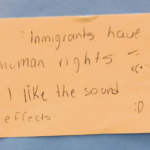 Inmigrants have
human rights
I like the sound
effects :D